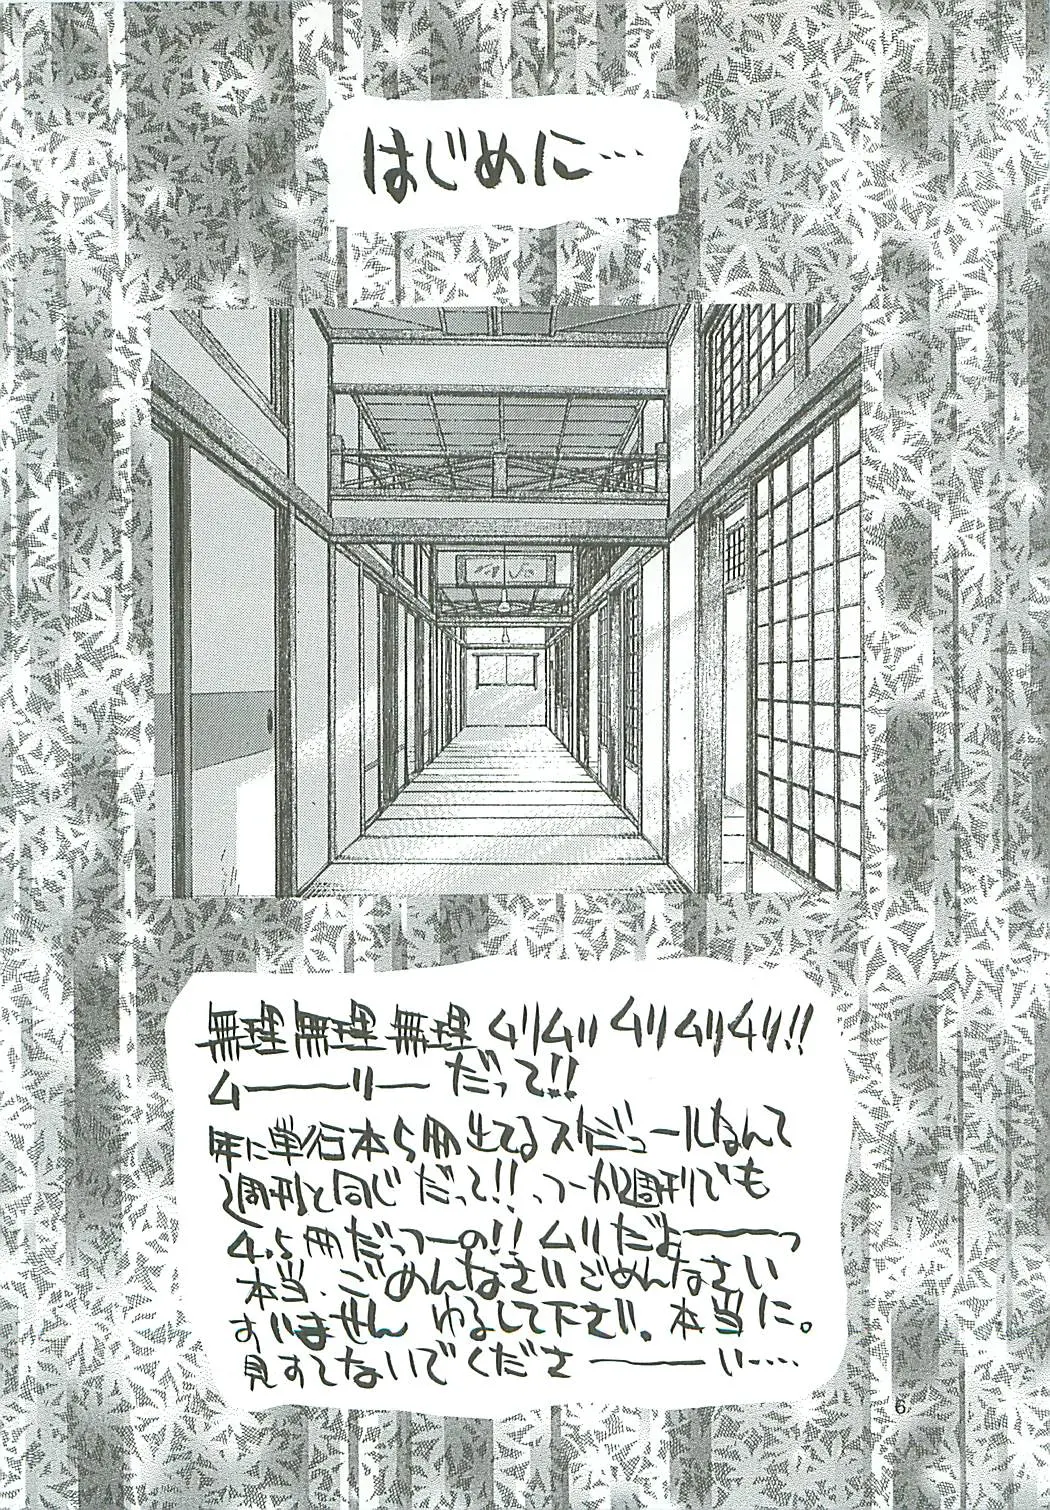 はじめに…
無理無理無理ムリムリムリムリムリ!!
ムーーリーだって!!
年に単行本5冊出てるスケジュールなんて
週刊と同じだって!!つーか週刊でも
4.5冊だっつーの!!ムリだよーーっ
本当、ごめんなさいごめんなさい
すいません ゆるして下さい。本当に。
見すてないでくださーーい……
6